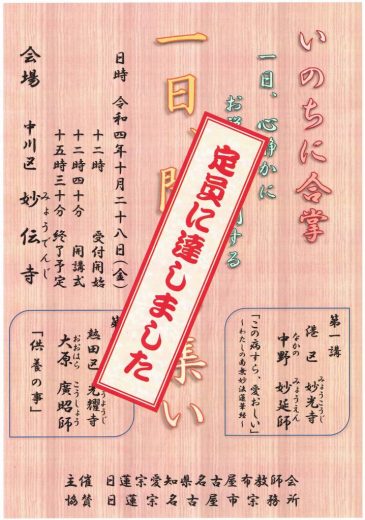 いのちに合掌
一日、心静かに
お
する
一日
集い
定員に達しました
日時 令和四年十月二十八日(金)
十二時 受付開始
十二時四十分 開講式
十五時三十分 終了予定
会場 中川区 妙伝寺
みょうでんじ
第一講
港区 妙光寺
みょうこうじ
中野 妙延師
なかの みょうえん
「この病すら、愛おしい」
~わたしの南無妙法蓮華経~
第
熱田区 光耀寺
ようじ
大原 廣昭師
おおはら こうしょう
「供養の事」
主催 日蓮宗愛知県名古屋布教師会
協賛 日蓮宗名古屋市宗務所